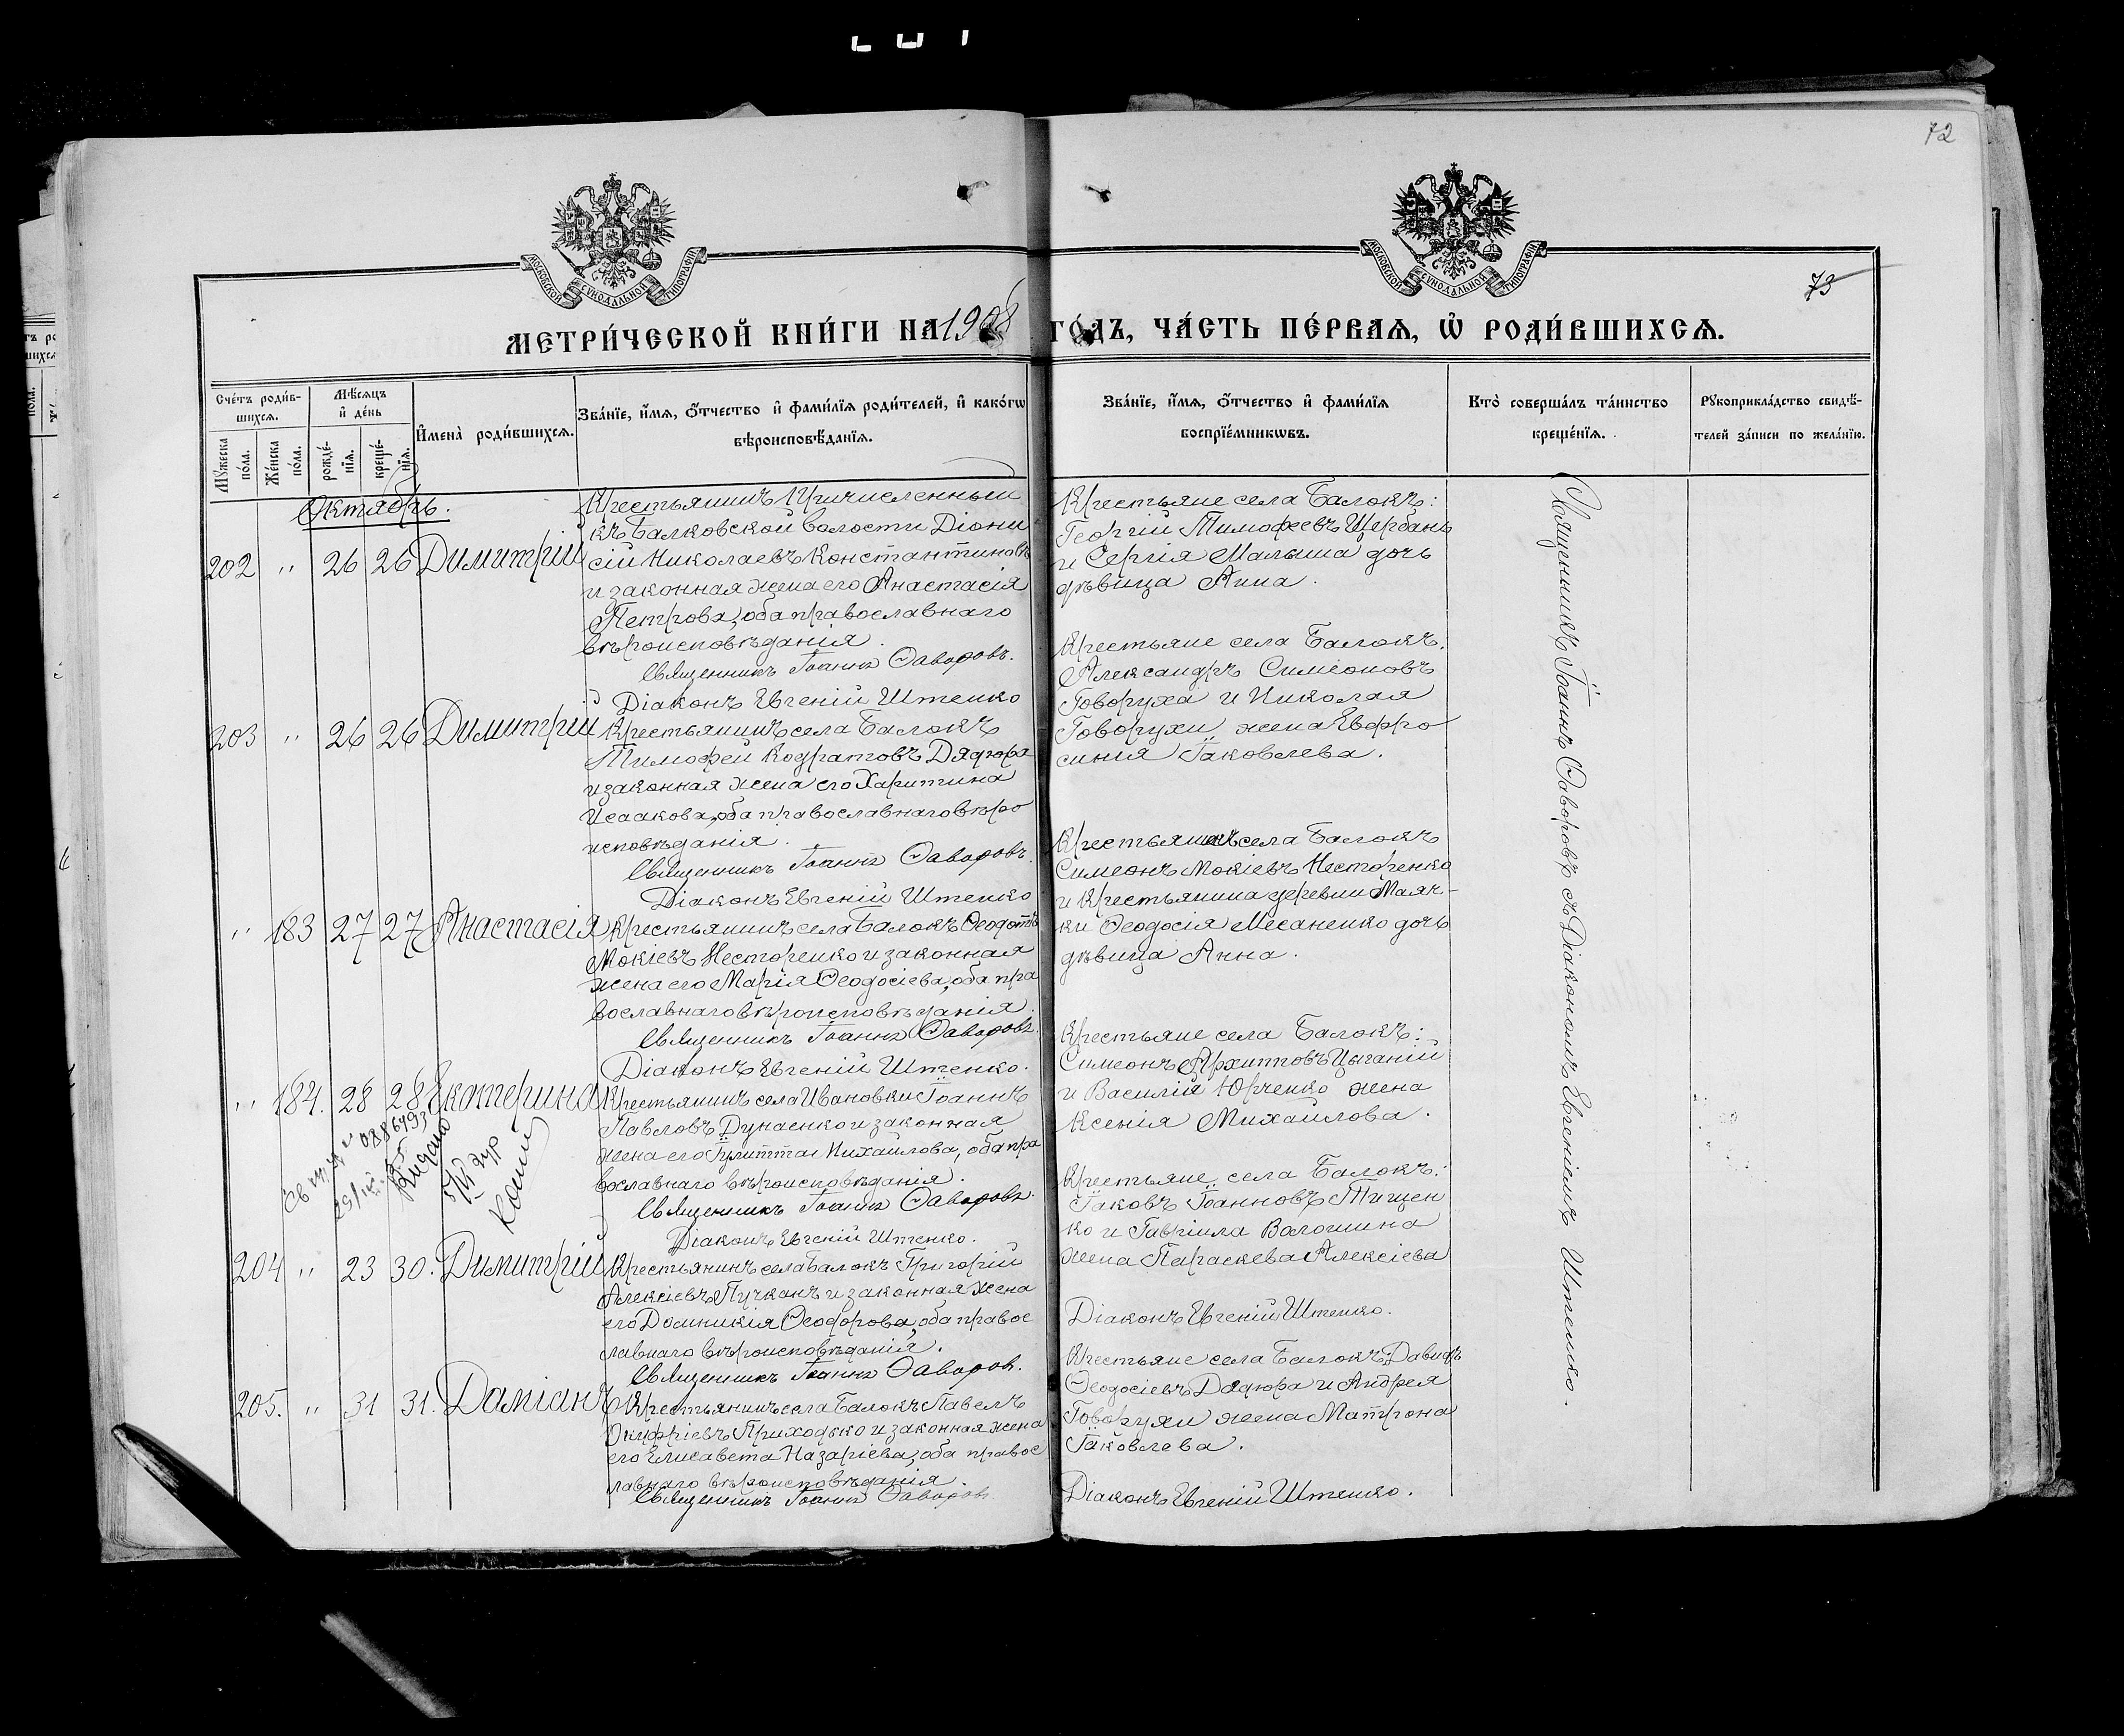 72
МОСКОВСКОЙ СѴНОДАЛЬНОЙ ТИПОГРАФІИ
МОСКОВСКОЙ СѴНОДАЛЬНОЙ ТИПОГРАФІИ
73
МЕТРИ́ЧЕСКОЙ КНИ́ГИ НА 1908 ГО́ДЪ, ЧА́СТЬ ПЕ́РВАѦ, Ѡ҆ РОДИ́ВШИХСѦ.
Сче́тъ роди́в-
шихсѧ.
Мѣ́сѧцъ
и҆ де́нь
Мꙋ́жеска
по́ла.
Же́нска
по́ла.
рожде́-
нїѧ.
креще́-
нїѧ.
И҆мена̀ роди́вшихсѧ.
Зва́нїе, и҆́мѧ, ѻ҆́тчество и҆ фами́лїѧ роди́телей, и҆ како́гѡ
вѣроисповѣ́данїѧ.
Зва́нїе, и҆́мѧ, ѻ҆́тчество и҆ фами́лїѧ
воспрїе́мникѡвъ.
Кто̀ соверша́лъ та́инство
креще́нїѧ.
Рꙋкоприкла́дство свидѣ́-
телей за́писи по жела́нїю.
Октябрь.
202 " 26 26 Димитрій
Крестьянинъ причисленный
къ Балковской волости Діони
сій Николаевъ Константиновъ
и законная жена его Анастасія
Петрова, оба православнаго
вѣроисповѣданія.
Священникъ Іоаннъ Ѳаворовъ.
Діаконъ Евгеній Штепко
Крестьяне села Балокъ:
Георгій Тимофеевъ Щербань
и Сергія Малыша дочь
дѣвица Анна.
203 " 26 26 Димитрій
Крестьянинъ села Балокъ
Тимофей Кодратовъ Дядюра
и законная жена его Харитина
Исаакова, оба православнаго вѣро
исповѣданія.
Священникъ Іоаннъ Ѳаворовъ.
Діаконъ Евгеній Штепко
Крестьяне села Балокъ:
Александръ Симеоновъ
Говоруха и Николая
Говорухи жена Евфро
синія Іаковлева.
" 183 27 27 Анастасія
Крестьянинъ села Балокъ Ѳеодотъ
Мокіевъ Несторенко и законная
жена его Марія Ѳеодосіева, оба пра
вославнаго вѣроисповѣданія.
Священникъ Іоаннъ Ѳаворовъ.
Діаконъ Евгеній Штепко.
Крестьянинъ села Балокъ
Симеонъ Мокіевъ Несторенко
и крестьянина деревни Маяч-
ки Ѳеодосія Месаненко дочь
дѣвица Анна.
" 184. 28 28 Екатерина
Крестьянинъ села Ивановки Іоаннъ
Павловъ Дунаенко и законная
жена его Іулитта Михайлова, оба пра
вославнаго вѣроисповѣданія.
Священникъ Іоаннъ Ѳаворовъ.
Діаконъ Евгеній Штепко.
Крестьяне села Балокъ:
Симеонъ Архипповъ Цыганій
и Василія Юрченко жена
Ксенія Михайлова.
088693
204 " 23 30. Димитрій
Крестьянинъ села Балокъ Григорій
Алексіевъ Пучканъ и законная жена
его Домникія Ѳеодорова, оба правос
лавнаго вѣроисповѣданія.
Священникъ Іоаннъ Ѳаворов.
Крестьяне села Балокъ:
Іаковъ Іоанновъ Тищен
ко и Гавріила Волошина
жена Параскева Алексіева
Діаконъ Евгеній Штепко.
205. " 31 31. Даміанъ
Крестьянинъ села Балокъ Павелъ
Онуфріевъ Приходько и законная жена
его Елисавета Назаріева, оба правос
лавнаго вѣроисповѣданія.
Священникъ Іоаннъ Ѳаворов.
Крестьяне села Балокъ: Давидъ
Ѳеодосіевъ Дядюра и Андрея
Говорухи жена Матрона
Іаковлева.
Діаконъ Евгеній Штепко.
Священникъ Іоаннъ Ѳаворовъ съ Діакономъ Евгеніемъ Штепко.